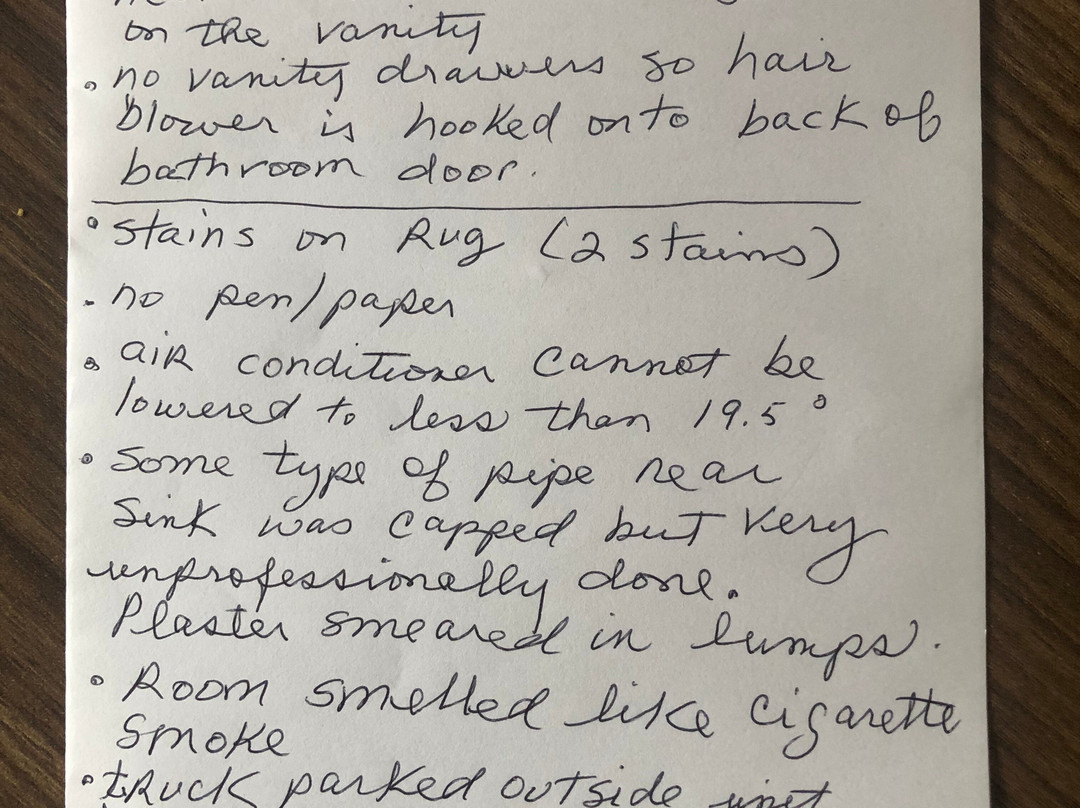 on the vanity
• no vanity drawers so hair
blower is hooked onto back of
bathroom door.
• stains on Rug (2 stains)
• no pen/paper
• air conditioner cannot be
lowered to less than 19.5°
• Some type of pipe near
Sink was capped but very
unprofessionally done.
Plaster smeared in lumps.
• Room smelled like cigarette
smoke
• truck parked outside unit